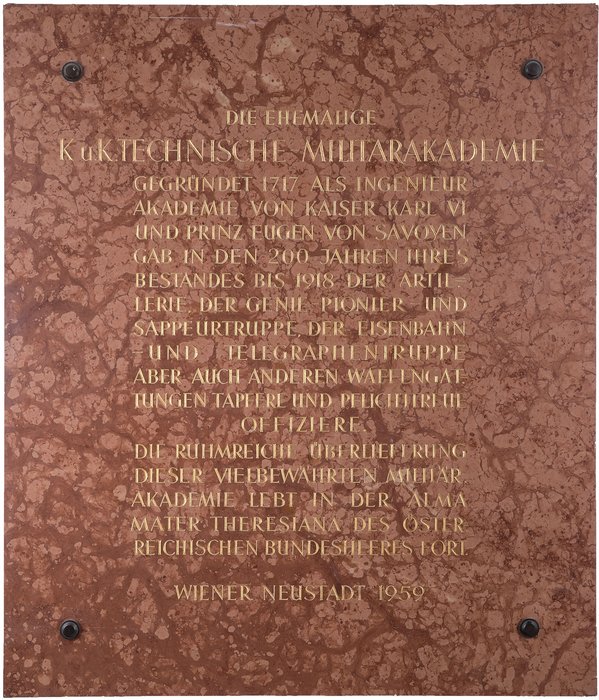 DIE EHEMALIGE
K.u.K.TECHNISCHE MILITÄRAKADEMIE
GEGRÜNDET 1717 ALS INGENIEUR
AKADEMIE VON KAISER KARL VI
UND PRINZ EUGEN VON SAVOYEN
GAB IN DEN 200 JAHREN IHRES
BESTANDES BIS 1918 DER ARTIL-
LERIE, DER GENIE- PIONIER- UND
SAPPEURTRUPPE, DER EISENBAHN
-UND TELEGRAPHENTRUPPE
ABER AUCH ANDEREN WAFFENGAT-
TUNGEN TAPFERE UND PFLICHTTREUE
OFFIZIERE.
DIE RUHMREICHE ÜBERLIEFERUNG
DIESER VIELBEWÄHRTEN MILITÄR-
AKADEMIE LEBT IN DER ALMA
MATER THERESIANA DES ÖSTER-
REICHISCHEN BUNDESHEERES FORT.
WIENER NEUSTADT 1959